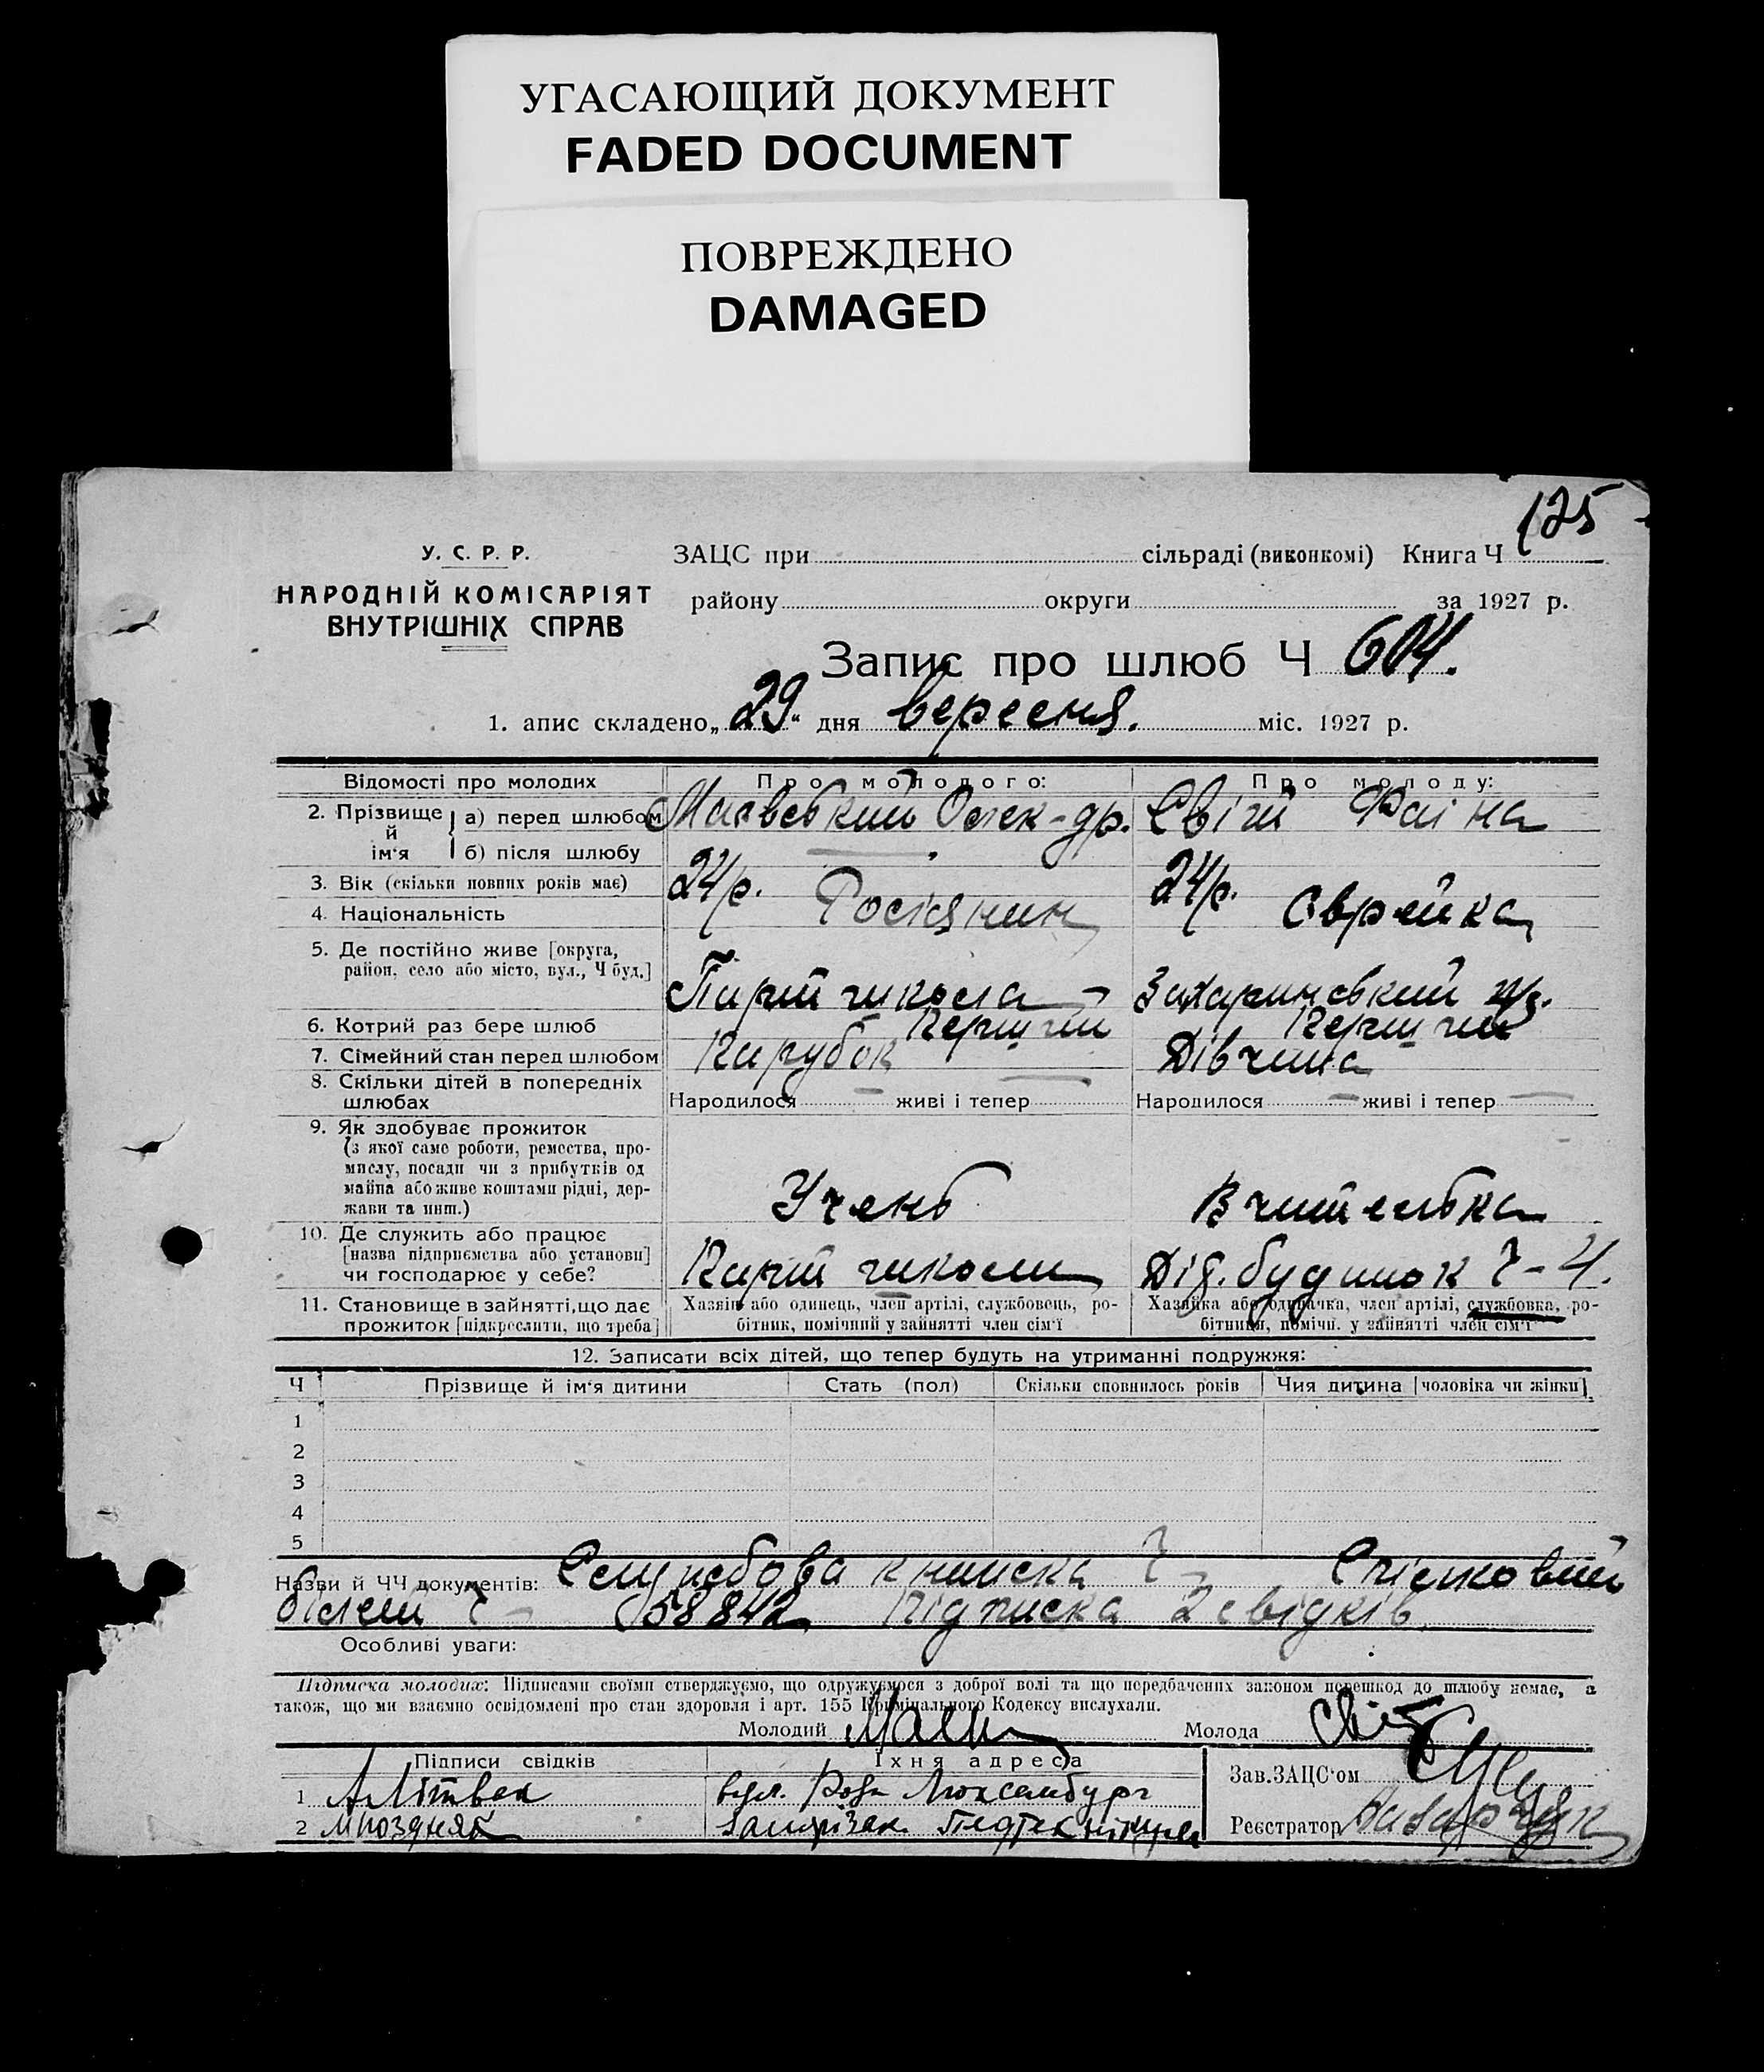 УГАСАЮЩИЙ ДОКУМЕНТ
FADED DOCUMENT
ПОВРЕЖДЕНО
DAMAGED
125
У. С. Р. Р.
НАРОДНІЙ КОМІСАРІЯТ
ВНУТРІШНІХ СПРАВ
ЗАЦС при сільраді (виконкомі) Книга Ч
району округи за 1927 р.
Запис про шлюб Ч 604.
1. апис складено „29“ дня вересня. міс. 1927 р.
Відомості про молодих Про молодого: Про молоду:
2. Прізвище й ім'я
а) перед шлюбом Свігй Фаїна
б) після шлюбу
3. Вік (скільки повних років має) 24/р. 24/р.
4. Національність Росіянин Єврейка
5. Де постійно живе [округа, район, село або місто, вул., Ч буд.] Партшкола
6. Котрий раз бере шлюб Перший Перший
7. Сімейний стан перед шлюбом Парубок Дівчина
8. Скільки дітей в попередніх шлюбах Народилося — живі і тепер — Народилося — живі і тепер —
9. Як здобуває прожиток
(з якої саме роботи, ремества, про-
мислу, посади чи з прибутків од
майна або живе коштами рідні, дер-
жави та инш.) Учень Вчителька
10. Де служить або працює
[назва підприємства або установи]
чи господарює у себе? Парт школи Дід. будинок Ч-4.
11. Становище в зайнятті, що дає
прожиток [підкреслити, що треба]
Хазяїн або одинець, член артілі, службовець, ро-
бітник, помічний у зайнятті член сім'ї
Хазяйка або одиначка, член артілі, службовка, ро-
бітниця, помічн. у зайнятті член сім'ї
12. Записати всіх дітей, що тепер будуть на утриманні подружжя:
Ч Прізвище й ім'я дитини Стать (пол) Скільки сповнилось років Чия дитина [чоловіка чи жінки]
1
2
3
4
5
Назви й ЧЧ документів: Службова книжка Ч — Спілковий
білет Ч — 58842 Підписка 2 свідків.
Особливі уваги:
Підписка молодих: Підписами своїми стверджуємо, що одружуємося з доброї волі та що передбачених законом перешкод до шлюбу немає, а
також, що ми взаємно освідомлені про стан здоровля і арт. 155 Кримінального Кодексу вислухали.
Молодий Молода
Підписи свідків Їхня адреса
1 А Літвак вул. Рози Люксембург
2 Мпоздняк
Зав. ЗАЦС'ом
Реєстратор